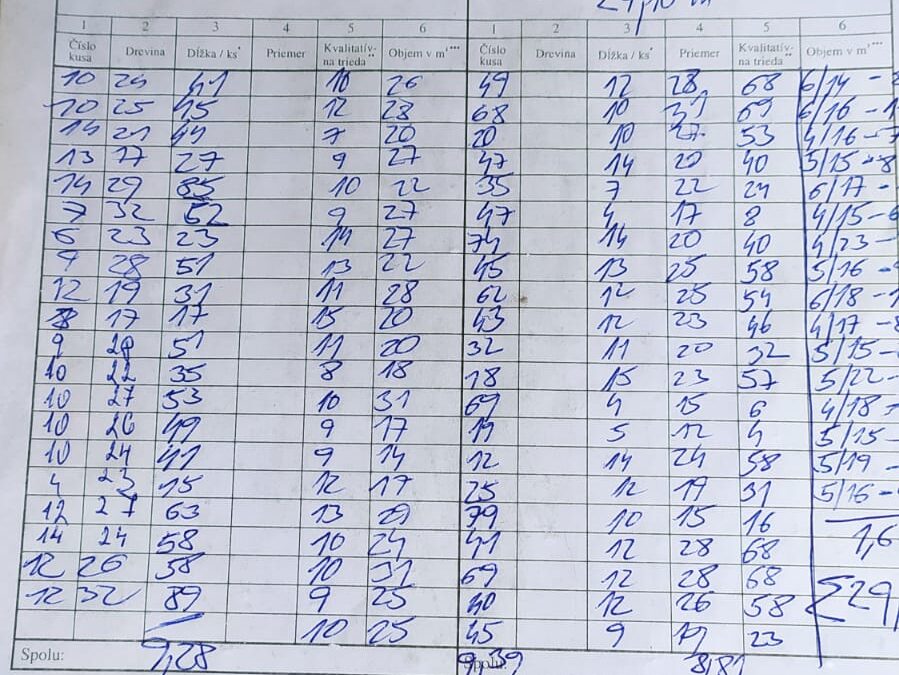 1 2 3 4 5 6 1 2 3 4 5 6
Číslo kusa Drevina Dĺžka / ks* Priemer Kvalitatív- na trieda** Objem v m³*** Číslo kusa Drevina Dĺžka / ks* Priemer Kvalitatív- na trieda** Objem v m³***
10 24 41 10 26 49 12 28 68 6/14 -
10 25 45 12 28 68 10 31 69 6/16 - 1
14 21 44 7 20 20 10 27 53 4/16 - 7
13 17 27 9 27 47 14 20 40 5/15 - 8
14 29 85 10 22 35 7 22 24 6/17 -
7 32 52 9 27 47 4 17 8 4/15 - 6
6 23 23 14 27 74 14 20 40 4/23 -
9 28 51 13 22 45 13 25 58 5/16 -
12 19 31 11 28 62 12 25 54 6/18 - 1
8 17 17 15 20 43 12 23 46 4/17 - 8
9 28 51 11 20 32 11 20 32 5/15 -
10 22 35 8 18 18 15 23 57 5/22 -
10 27 53 10 31 69 4 15 6 4/18 -
10 26 49 9 17 19 5 12 4 5/15 -
10 24 41 9 14 12 14 24 58 5/19 -
4 23 15 12 17 25 12 19 31 5/16 -
12 27 63 13 29 79 10 15 16
14 24 58 10 24 41 12 28 68 1,6
12 26 58 10 31 69 12 28 68
12 32 89 9 25 40 12 26 58 Σ29
10 25 45 9 19 23
Spolu: 9,28 Spolu: 9,39 8,81